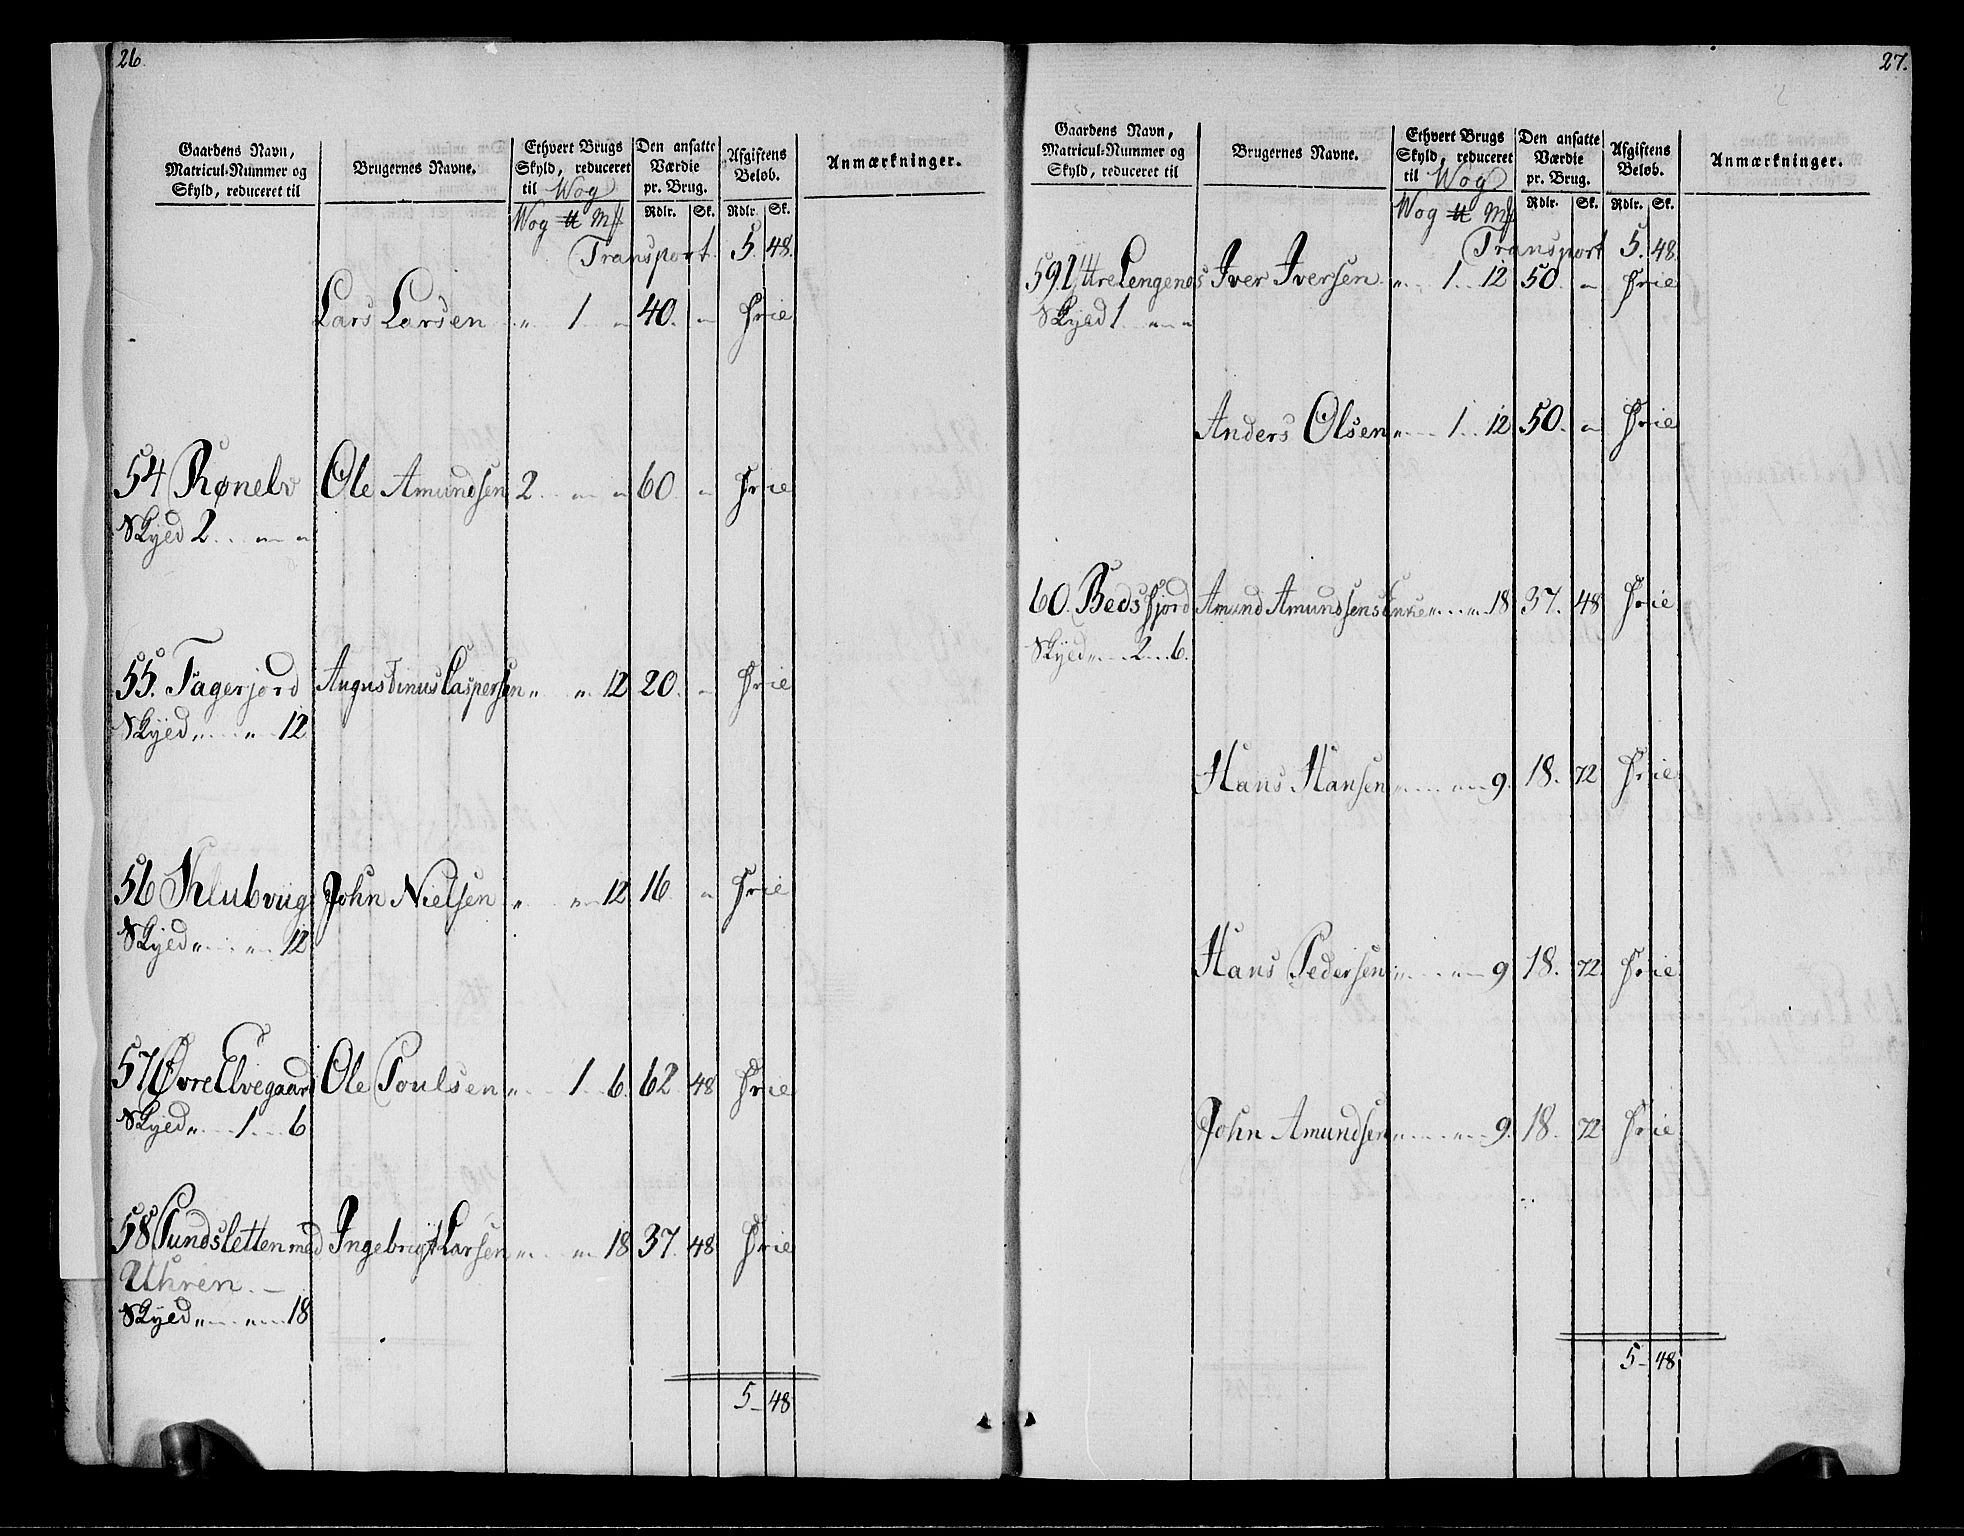 26.
Gaardens Navn, Matricul-Nummer og Skyld, reduceret til
Brugernes Navne.
Ethvert Brugs Skyld, reduceret til Wog
Den ansatte Værdie pr. Brug.
Afgiftens Beløb.
Anmærkninger.
Wog ℔ Mk
Rdlr. Sk. Rdlr. Sk.
Transport 5. 48.
Lars Larsen „ 1 „ 40. „ Frie
54 Rønelv Ole Amundsen 2 „ „ 60. „ Frie
Skyld 2 „ „
55. Fagerjord Augustinus Caspersen „ „ 12 20. „ Frie
Skyld „ „ 12
56 Klubviig John Nielsen „ „ 12 16 „ Frie
Skyld „ „ 12
57 Øvre Elvegaard Ole Poulsen „ 1 6. 62. 48 Frie
Skyld „ 1 6
58 Sundsletten med Ingebrigt Larsen „ „ 18 37. 48 Frie
Uhren
Skyld „ „ 18
5 48
27.
Gaardens Navn, Matricul-Nummer og Skyld, reduceret til
Brugernes Navne.
Ethvert Brugs Skyld, reduceret til Wog
Den ansatte Værdie pr. Brug.
Afgiftens Beløb.
Anmærkninger.
Wog ℔ Mk
Rdlr. Sk. Rdlr. Sk.
Transport 5. 48.
59 Ittre Lengenes Iver Iversen „ 1 12 50. „ Frie
Skyld 1 „ „
Anders Olsen „ 1 12 50. „ Frie
60. Bedsfjord Amund Amundsens Enke „ „ 18 37. 48 Frie
Skyld „ 2 6.
Hans Hansen „ „ 9. 18. 72 Frie
Hans Pedersen „ „ 9 18. 72. Frie
John Amundsen „ „ 9. 18. 72 Frie
5 48